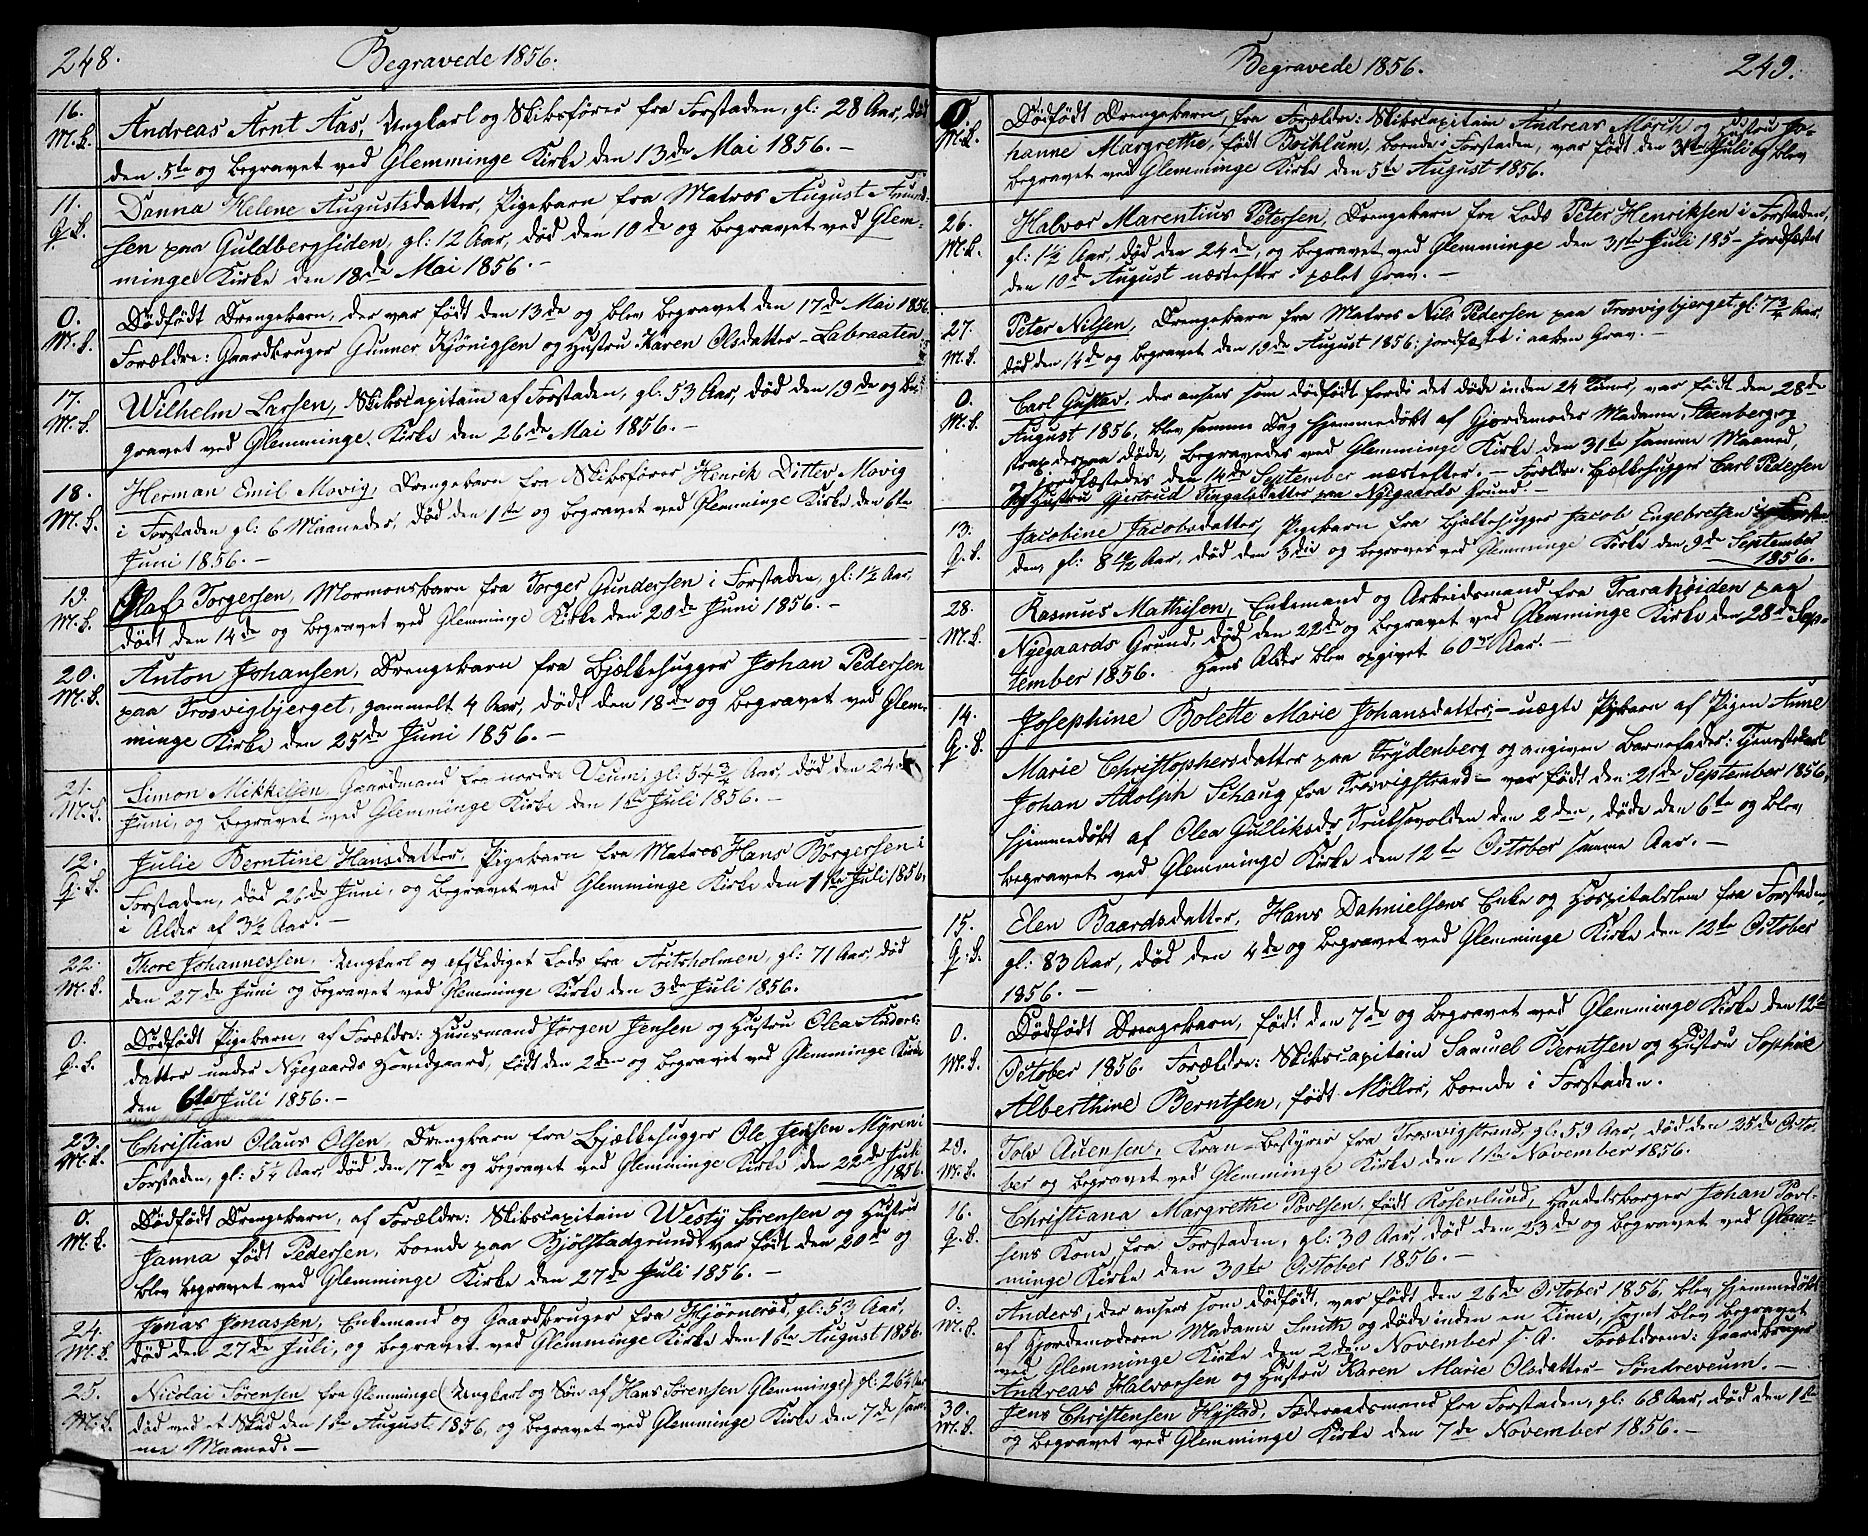 248.
Begravede 1856.
16.
M.k.
Andreas Arnt Aas, Ungkarl og Skibsfører fra Forstaden, gl: 28 Aar, død
den 5te og begravet ved Glemminge Kirke den 13de Mai 1856.-
11.
Q.k.
Danna Helene Augustsdatter, Pigebarn fra Matros August Amund-
sen paa Guldbergsiden, gl: 12 Aar, død den 10de og begravet ved Glem-
minge Kirke den 18de Mai 1856.-
0.
M.k.
Dødfødt Drengebarn, der var født den 13de og blev begravet den 17de Mai 1856
Forældre: Gaardbruger Gunner Kjønigsen og Hustru Karen Olsdatter - Labraaten
17.
M.k.
Wilhelm Larsen, Skibscapitain af Forstaden, gl: 53 Aar, død den 19de og be-
gravet ved Glemminge Kirke den 26de Mai 1856.-
18.
M.k.
Herman Emil Movig, Drengebarn fra Skibsfører Henrik Ditlev Movig
i Forstaden gl: 6 Maaneder, død den 1ste og begravet ved Glemminge Kirke den 6te
Juni 1856.-
19.
M.k.
Olaf Torgersen, Mormonsbarn fra Torger Gundersen i Forstaden, gl: 1½ Aar,
dødt den 14de og begravet ved Glemminge Kirke den 20de Juni 1856.-
20.
M.k.
Anton Johansen, Drengebarn fra Bjælkehugger Johan Pedersen
paa Trosvigbjerget, gammelt 4 Aar, dødt den 18de og begravet ved Glem-
minge Kirke den 25de Juni 1856.-
21.
M.k.
Simon Mikkelsen, Gaardmand fra nordre Veum, gl: 54¾ Aar, død den 24de
Juni, og begravet ved Glemminge Kirke den 1ste Juli 1856.-
12.
Q.k.
Julie Berntine Hansdatter, Pigebarn fra Matros Hans Børgersen i
Forstaden, død 26de Juni, og begravet ved Glemminge Kirke den 1ste Juli 1856,
i Alder af 3½ Aar.-
22.
M.k.
Thore Johannessen, Ungkarl og afskediget Lods fra, gl: 71 Aar, død
den 27de Juni og begravet ved Glemminge Kirke den 3die Juli 1856.
0.
Q.k.
Dødfødt Pigebarn, af Forældre: Huusmand Jørgen Jensen og Hustru Olea Anders-
datter under Nyegaards Hovedgaard, født den 2den og begravet ved Glemminge Kirke
den 6te Juli 1856.-
23.
M.k.
Christian Olaus Olsen, Drengebarn fra Bjælkehugger Ole Jensen Myren i
Forstaden, gl: 5¼ Aar, død den 17de og begravet ved Glemminge Kirke den 22de Juli
1856.
0.
M.k.
Dødfødt Drengebarn, af Forældre: Skibscapitain Westy Sørensen og Hustru
Janna født Pedersen, boende paa Kjølstadgrund, var født den 20de og
blev begravet ved Glemminge Kirke den 27de Juli 1856.-
24.
M.k.
Jonas Jonassen, Enkemand og Gaardbruger fra Hjørnerød, gl: 53 Aar,
død den 27de Juli, og begravet ved Glemminge Kirke den 1ste August 1856.
25.
M.k.
Nicolai Sørensen fra Glemminge (Ungkarl og Søn af Hans Sørensen Glemminge) gl: 26¼ Aar
død ved et Skud den 1ste August 1856, og begravet ved Glemminge Kirke den 7de sam-
me Maaned.-
Begravede 1856.
249.
0.
M.k.
Dødfødt Drengebarn, fra Forældre: Skibscapitain Andreas Mørch og Hustru Jo-
hanne Margrethe, født Bøchlum, boende i Forstaden, var født den 31te Juli og blev
begravet ved Glemminge Kirke den 5te August 1856.
26.
M.k.
Halvor Marentius Petersen, Drengebarn fra Lods Peter Henriksen i Forstaden,
gl: 1½ Aar, død den 24de, og begravet ved Glemminge den 31te Juli 185- jordfæstet
den 10de August næstefter i Grav.-
27.
M.k.
Peter Nilsen, Drengebarn fra Matros Nils Pedersen paa Trosvigbjerget gl: 7¾ Aar,
død den 14de og begravet den 19de August 1856; jordfæstet i aaben Grav.-
0.
M.k.
Carl Gustav, der ansees som dødfødt fordi det døde inden 24 Timer, var født den 28de
August 1856, blev samme Dag hjemmedøbt af Gjordemoder Madame Steenberg og
strax derpaa døde, begravedes ved Glemminge Kirke den 31te samme Maaned,
og jordfæstedes den 14de September næstefter.- Forældre: Bjælkehugger Carl Pedersen
og Hustru Gjertrud Tingalsdatter paa Nyegaards Grund.-
13.
Q.k.
Jacobine Jacobsdatter, Pigebarn fra Bjælkehugger Jacob Engebretsen i Forsta-
den, gl: 8 Aar, død den 3die og begravet ved Glemminge Kirke den 9de September
1856.
28.
M.k.
Rasmus Mathisen, Enkemand og Arbeidsmand fra Trarahøiden paa
Nyegaards Grund, død den 22de og begravet ved Glemminge Kirke den 28de Sep-
tember 1856. Hans Alder blev opgivet 60 Aar.-
14.
Q.k.
Josephine Bolette Marie Johansdatter, - uægte Pigebarn af Pigen Anne
Marie Christophersdatter paa Frydenberg og angiven Barnefader: Tjenestekarl
Johan Adolph Schaug fra Trosvigstrand - var født den 21de September 1856,
hjemmedøbt af Olea Gulliksdr. Trulsevolden den 2den, døde den 6te og blev
begravet ved Glemminge Kirke den 12te October samme Aar.-
15.
Q.k.
Elen Baardsdatter, Hans Dahnielsens Enke og Hospitalslem fra Forstaden,
gl: 83 Aar, død den 4de og begravet ved Glemminge Kirke den 12te October
1856.-
0.
M.k.
Dødfødt Drengebarn, født den 7de og begravet ved Glemminge Kirke den 12te
October 1856. Forældre: Skibscapitain Samuel Berntsen og Hustru Sophie
Alberthine Berntsen, født Møller, boende i Forstaden.
29.
M.k.
Tolv Auensen, Kran-Bestyrer fra Trosvigstrand, gl: 59 Aar, død den 25de Octo-
ber og begravet ved Glemminge Kirke den 1ste November 1856.
16.
Q.k.
Christiana Margrethe Povlsen, født Rosenlund, Handelsborger Johan Povl-
sens Kone, fra Forstaden, gl: 30 Aar, død den 23de og begravet ved Glem-
minge Kirke den 30te October 1856.-
0.
M.k.
Anders, der ansees som dødfødt, var født den 26de October 1856, blev hjemmedøbt
af Gjordemoderen Madame Smith og døde inden en Time, samt blev begravet
ved Glemminge Kirke den 2den November s. A. Forældrene: Gaardbruger
Andreas Halvorsen og Hustru Karen Marie Olsdatter - Søndreveum.-
30.
M.k.
Jens Christensen Hystad, Føderaadsmand fra Forstaden, gl: 68 Aar, død den 1ste
og begravet ved Glemminge Kirke den 7de November 1856.-